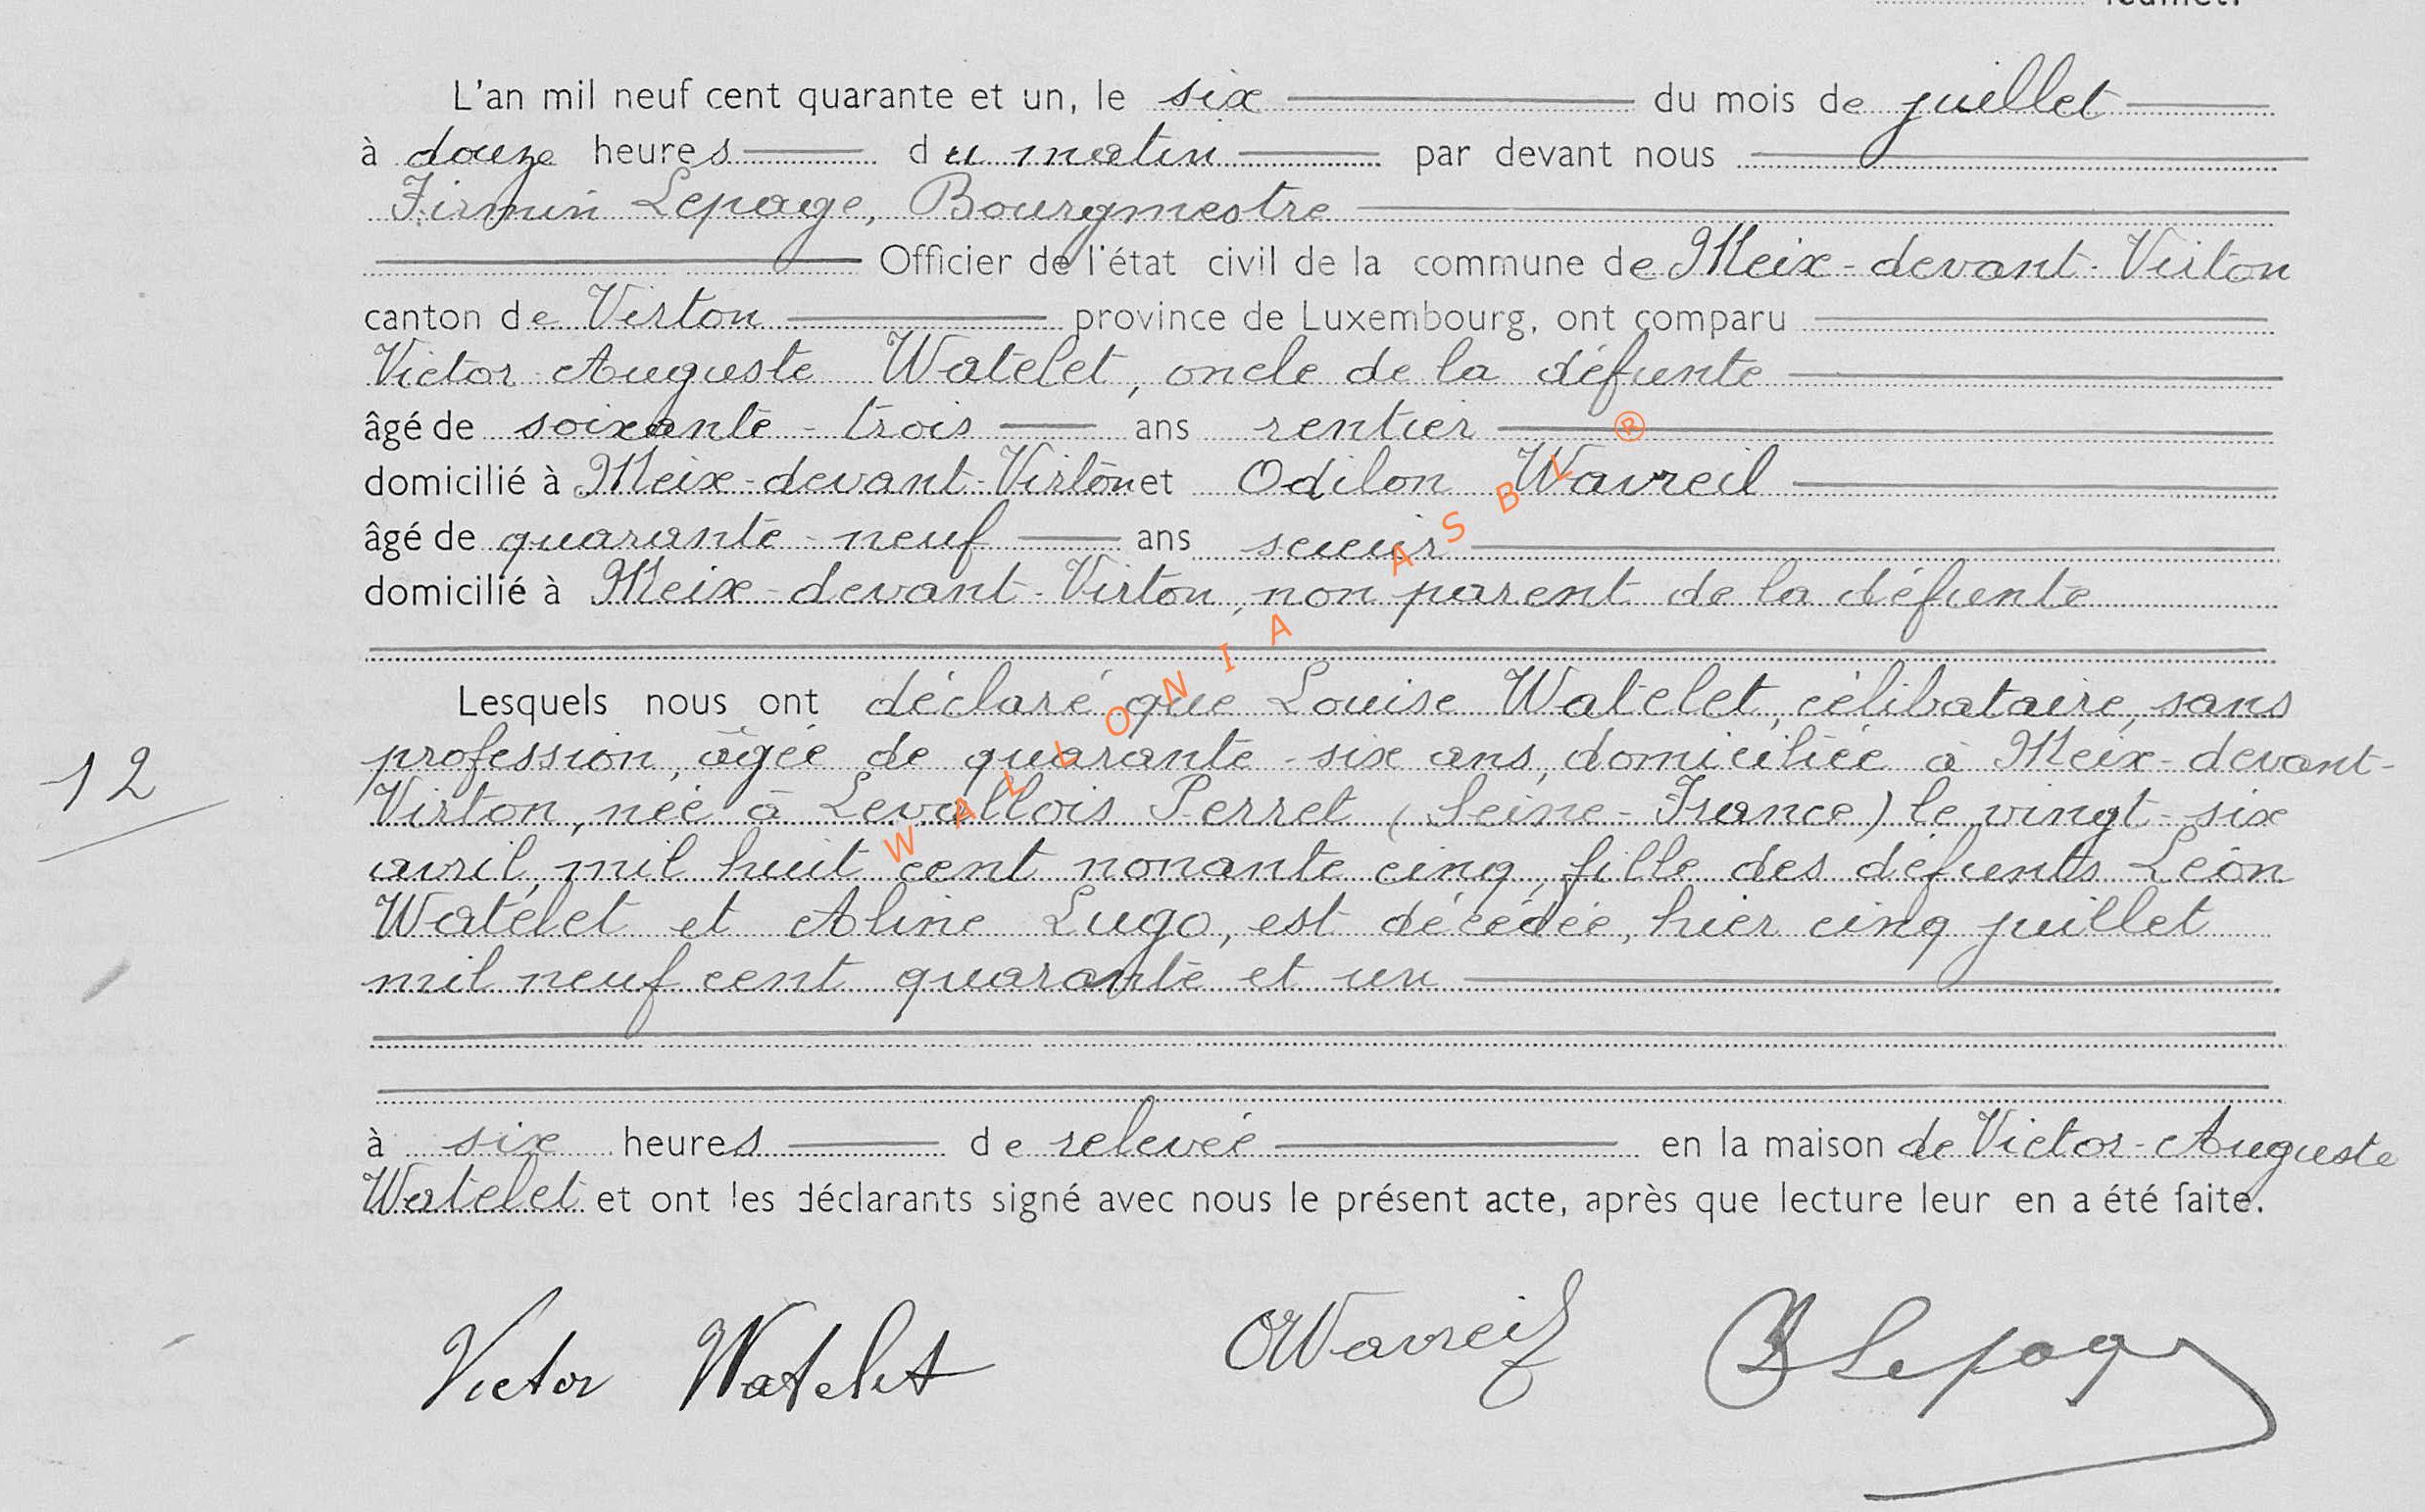 feuillet.
L'an mil neuf cent quarante et un, le six du mois de juillet
à douze heures du matin par devant nous
Firmin Lepage, Bourgmestre
Officier de l'état civil de la commune de Meix-devant-Virton
canton de Virton province de Luxembourg, ont comparu
Victor Auguste Watelet, oncle de la défunte
âgé de soixante-trois ans rentier
domicilié à Meix-devant-Virton et Odilon Wavreil
âgé de quarante-neuf ans scieur
domicilié à Meix-devant-Virton, non parent de la défunte
Lesquels nous ont déclaré que Louise Watelet, célibataire, sans
profession, âgée de quarante-six ans, domiciliée à Meix-devant-
12
Virton, née à Levallois Perret (Seine-France) le vingt-six
avril, mil huit cent nonante cinq, fille des défunts Léon
Watelet et Aline Lugo, est décédée, hier cinq juillet
mil neuf cent quarante et un
à six heures de relevée en la maison de Victor-Auguste
Watelet et ont les déclarants signé avec nous le présent acte, après que lecture leur en a été faite.
Victor Watelet OWavreil Lepage
WALLONIA ASBL ®